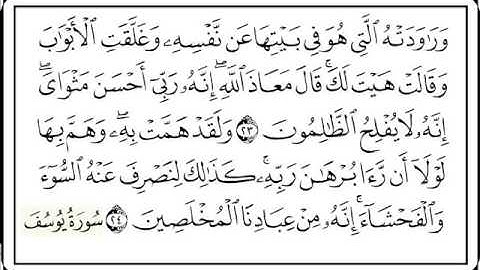 وَرَٰوَدَتْهُ ٱلَّتِى هُوَ فِى بَيْتِهَا عَن نَّفْسِهِۦ وَغَلَّقَتِ ٱلْأَبْوَٰبَ
وَقَالَتْ هَيْتَ لَكَ ۚ قَالَ مَعَاذَ ٱللَّهِ ۖ إِنَّهُۥ رَبِّىٓ أَحْسَنَ مَثْوَاىَ ۖ
إِنَّهُۥ لَا يُفْلِحُ ٱلظَّٰلِمُونَ ٢٣ وَلَقَدْ هَمَّتْ بِهِۦ ۖ وَهَمَّ بِهَا
لَوْلَآ أَن رَّءَا بُرْهَٰنَ رَبِّهِۦ ۚ كَذَٰلِكَ لِنَصْرِفَ عَنْهُ ٱلسُّوٓءَ
وَٱلْفَحْشَآءَ ۚ إِنَّهُۥ مِنْ عِبَادِنَا ٱلْمُخْلَصِينَ ٢٤ سُورَةُ يُوسُفَ